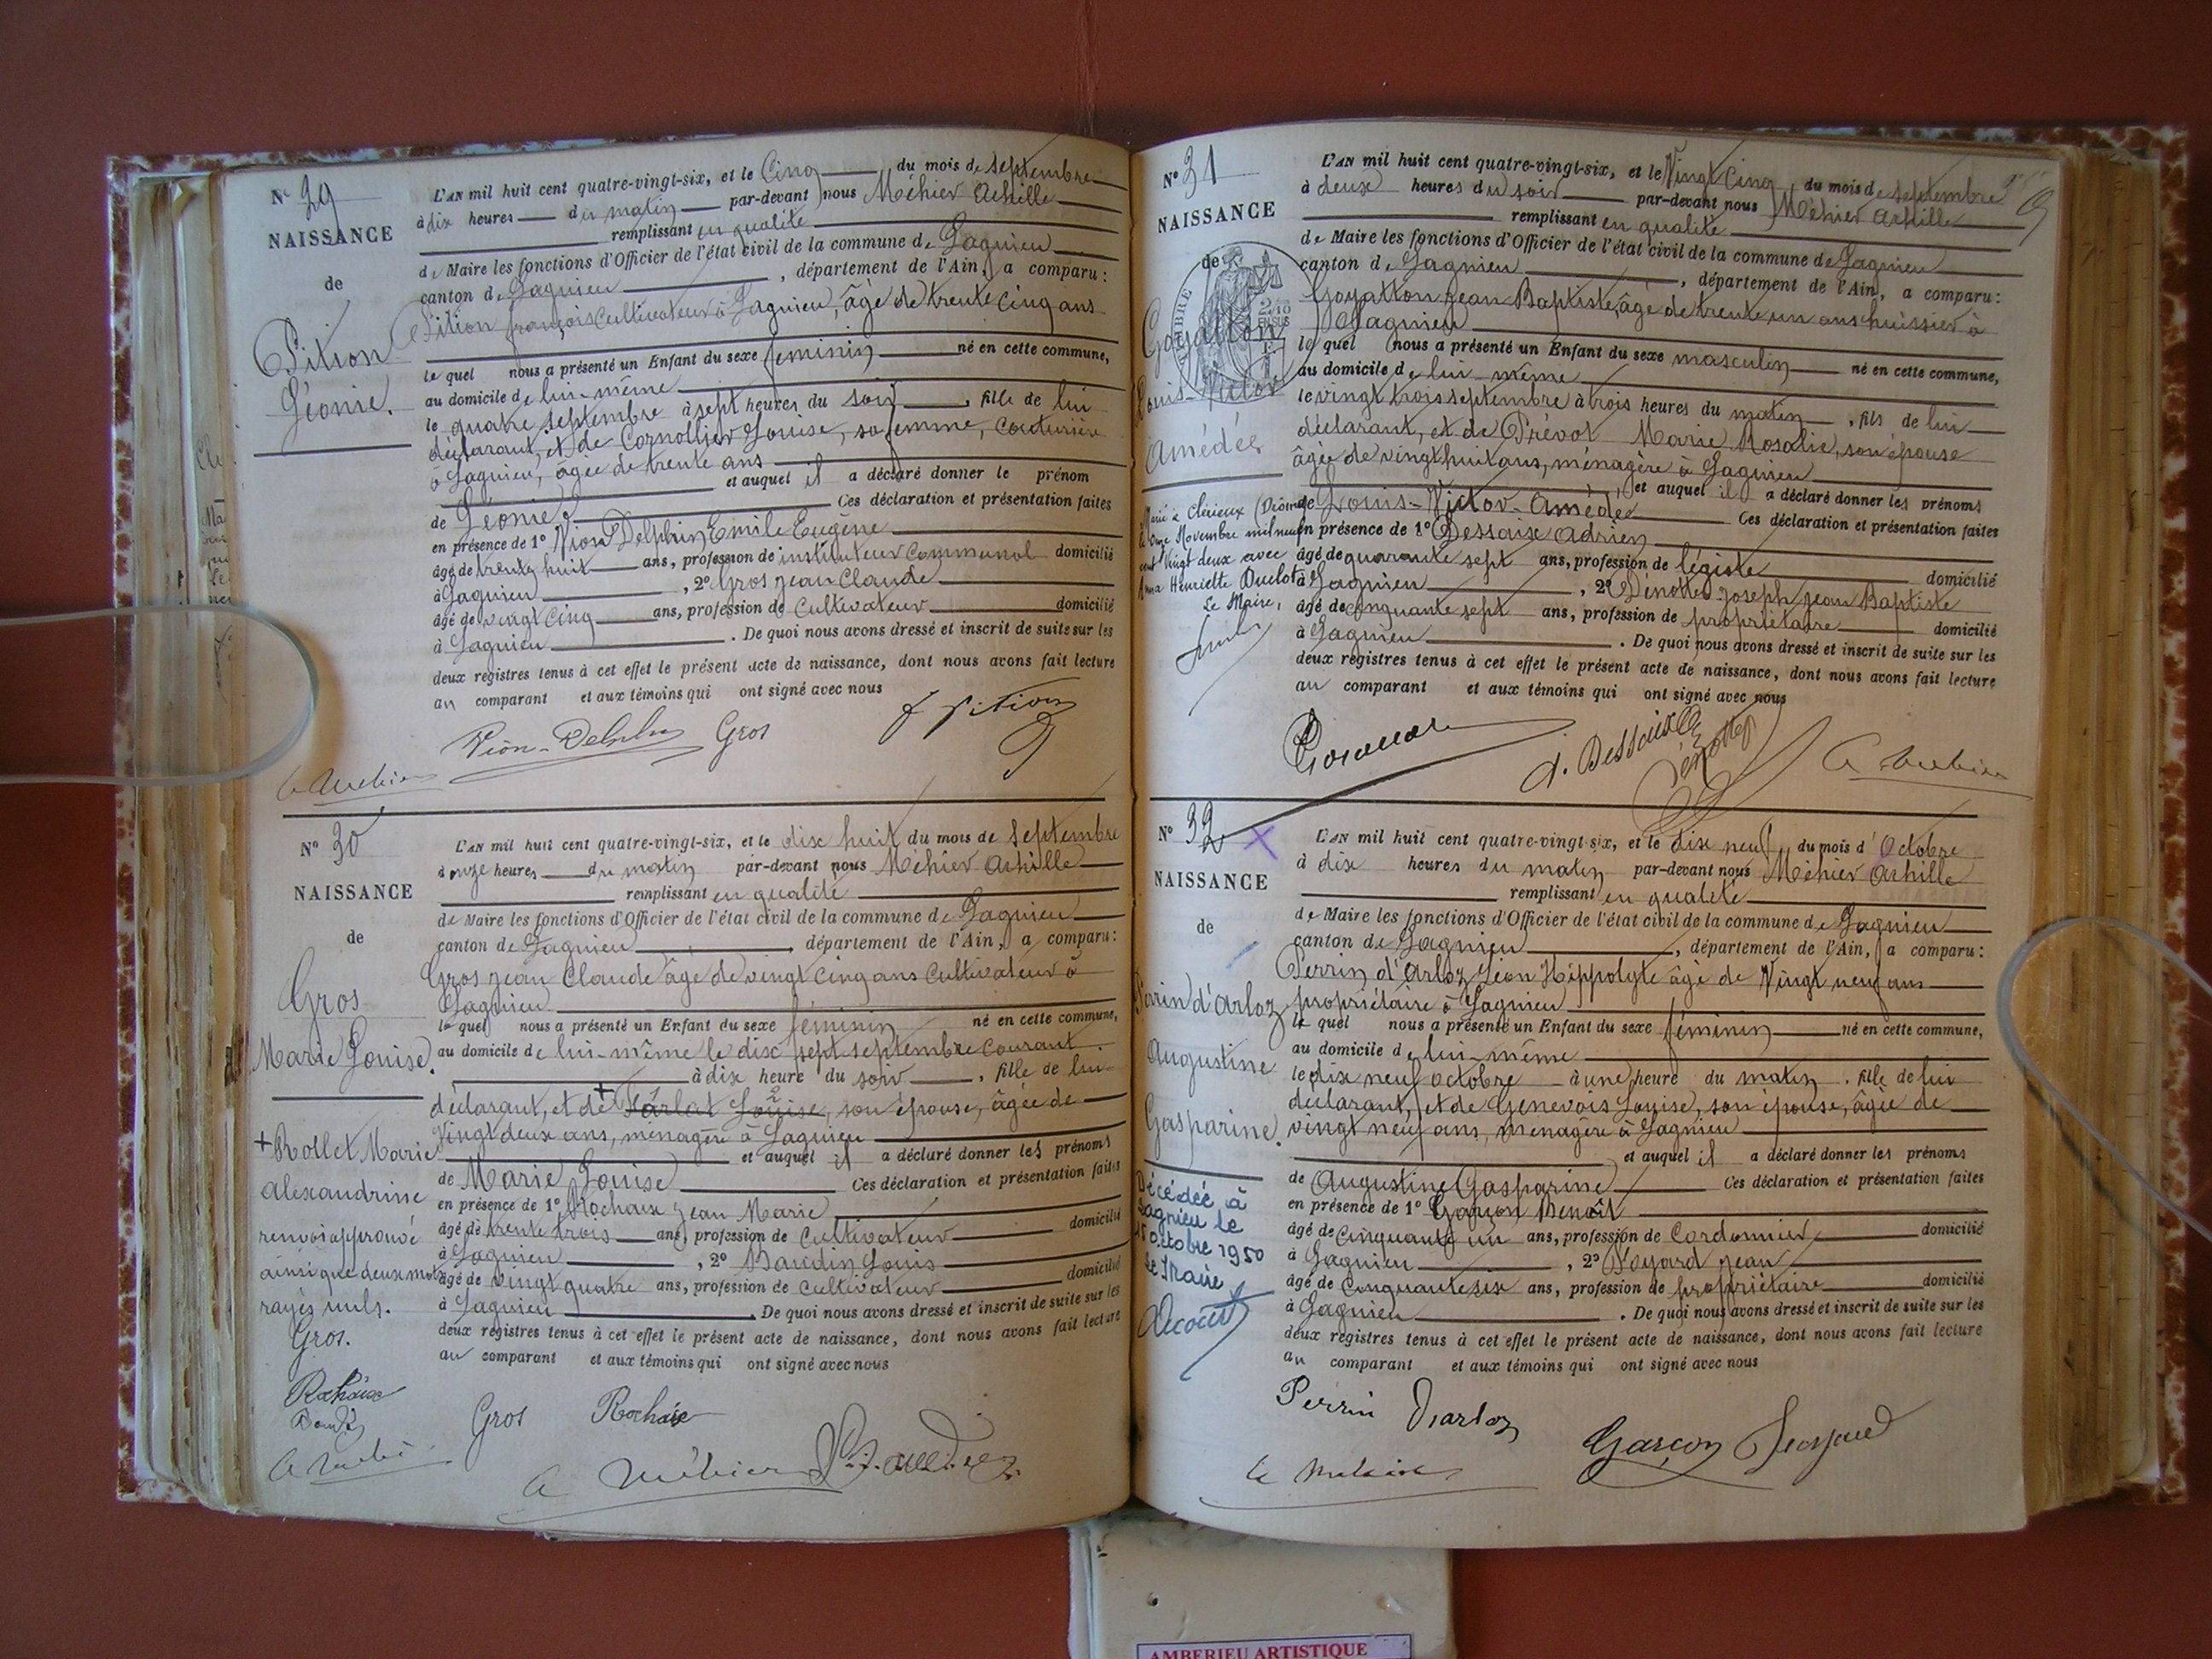 N° 29
NAISSANCE
de
Pition
Léonie.
L'AN mil huit cent quatre-vingt-six, et le Cinq du mois de Septembre
à dix heures du matin par-devant nous Méhier Achille
remplissant en qualité
de Maire les fonctions d'Officier de l'état civil de la commune de Lagnieu
canton de Lagnieu, département de l'Ain, a comparu:
Pition françois Cultivateur à Lagnieu, âgé de trente cinq ans
lequel nous a présenté un Enfant du sexe féminin né en cette commune,
au domicile de lui-même
le quatre septembre à sept heures du soir, fille de lui
déclarant, et de Cornollier Louise, sa femme, Couturière
à Lagnieu, âgée de trente ans
et auquel il a déclaré donner le prénom
de Léonie. Ces déclaration et présentation faites
en présence de 1° Vion Delphin Emile Eugène
âgé de trente huit ans, profession de instituteur Communal domicilié
à Lagnieu, 2° Gros Jean Claude
âgé de vingt cinq ans, profession de Cultivateur domicilié
à Lagnieu. De quoi nous avons dressé et inscrit de suite sur les
deux registres tenus à cet effet le présent acte de naissance, dont nous avons fait lecture
au comparant et aux témoins qui ont signé avec nous
Vion-Delphin Gros f Pition
A Méhier
N° 30
NAISSANCE
de
Gros
Marie Louise.
+ Rollet Marie
alexandrine
renvoi approuvé
ainsi que deux mots
rayés nuls.
Gros.
Rochaix
Baudin
A Méhier
L'AN mil huit cent quatre-vingt-six, et le dix huit du mois de Septembre
à onze heures du matin par-devant nous Méhier Achille
remplissant en qualité
de Maire les fonctions d'Officier de l'état civil de la commune de Lagnieu
canton de Lagnieu, département de l'Ain, a comparu:
Gros Jean Claude âgé de vingt cinq ans Cultivateur à
Lagnieu
lequel nous a présenté un Enfant du sexe féminin né en cette commune,
au domicile de lui-même le dix sept septembre courant.
à dix heure du soir, fille de lui
déclarant, et de + Louise, son épouse, âgée de
vingt deux ans, ménagère à Lagnieu
et auquel il a déclaré donner les prénoms
de Marie Louise Ces déclaration et présentation faites
en présence de 1° Rochaix Jean Marie
âgé de trente trois ans, profession de Cultivateur domicilié
à Lagnieu, 2° Baudin Louis
âgé de vingt quatre ans, profession de cultivateur domicilié
à Lagnieu. De quoi nous avons dressé et inscrit de suite sur les
deux registres tenus à cet effet le présent acte de naissance, dont nous avons fait lecture
au comparant et aux témoins qui ont signé avec nous
Gros Rochaix
A Méhier
N° 31
NAISSANCE
de
Goyatton
Louis-Victor
Amédée
Marié à Clérieux (Drôme)
Novembre mil neuf
cent vingt deux avec
Henriette Duclot
Le Maire,
L'AN mil huit cent quatre-vingt-six, et le Vingt Cinq du mois de Septembre
à deux heures du soir par-devant nous Méhier Achille
remplissant en qualité
de Maire les fonctions d'Officier de l'état civil de la commune de Lagnieu
canton de Lagnieu, département de l'Ain, a comparu:
Goyatton Jean Baptiste, âgé de trente un ans huissier à
Lagnieu
lequel nous a présenté un Enfant du sexe masculin né en cette commune,
au domicile de lui-même
le vingt trois septembre à trois heures du matin, fils de lui
déclarant, et de Prévot Marie Rosalie, son épouse
âgée de vingt huit ans, ménagère à Lagnieu
et auquel il a déclaré donner les prénoms
de Louis-Victor-Amédée Ces déclaration et présentation faites
en présence de 1° Dessaix Adrien
âgé de quarante sept ans, profession de légiste domicilié
à Lagnieu, 2° Dénottes Joseph Jean Baptiste
âgé de cinquante sept ans, profession de propriétaire domicilié
à Lagnieu. De quoi nous avons dressé et inscrit de suite sur les
deux registres tenus à cet effet le présent acte de naissance, dont nous avons fait lecture
au comparant et aux témoins qui ont signé avec nous
A. Dessaix
A Méhier
N° 32
NAISSANCE
de
Perrin d'Arloz
Augustine
Gasparine.
Décédée à
Lagnieu le
15 octobre 1950
Le Maire
L'AN mil huit cent quatre-vingt-six, et le dix neuf du mois d'Octobre
à dix heures du matin par-devant nous Méhier Achille
remplissant en qualité
de Maire les fonctions d'Officier de l'état civil de la commune de Lagnieu
canton de Lagnieu, département de l'Ain, a comparu:
Perrin d'Arloz Léon Hippolyte âgé de Vingt neuf ans
propriétaire à Lagnieu
lequel nous a présenté un Enfant du sexe féminin né en cette commune,
au domicile de lui-même
le dix neuf octobre à une heure du matin, fille de lui
déclarant, et de Genevois Louise, son épouse, âgée de
vingt neuf ans, ménagère à Lagnieu
et auquel il a déclaré donner les prénoms
de Augustine Gasparine Ces déclaration et présentation faites
en présence de 1° Garçon Benoît
âgé de cinquante un ans, profession de Cordonnier domicilié
à Lagnieu, 2° Jean
âgé de Cinquante six ans, profession de propriétaire domicilié
à Lagnieu. De quoi nous avons dressé et inscrit de suite sur les
deux registres tenus à cet effet le présent acte de naissance, dont nous avons fait lecture
au comparant et aux témoins qui ont signé avec nous
Perrin Darloz
Garçon
AMBERIEU ARTISTIQUE